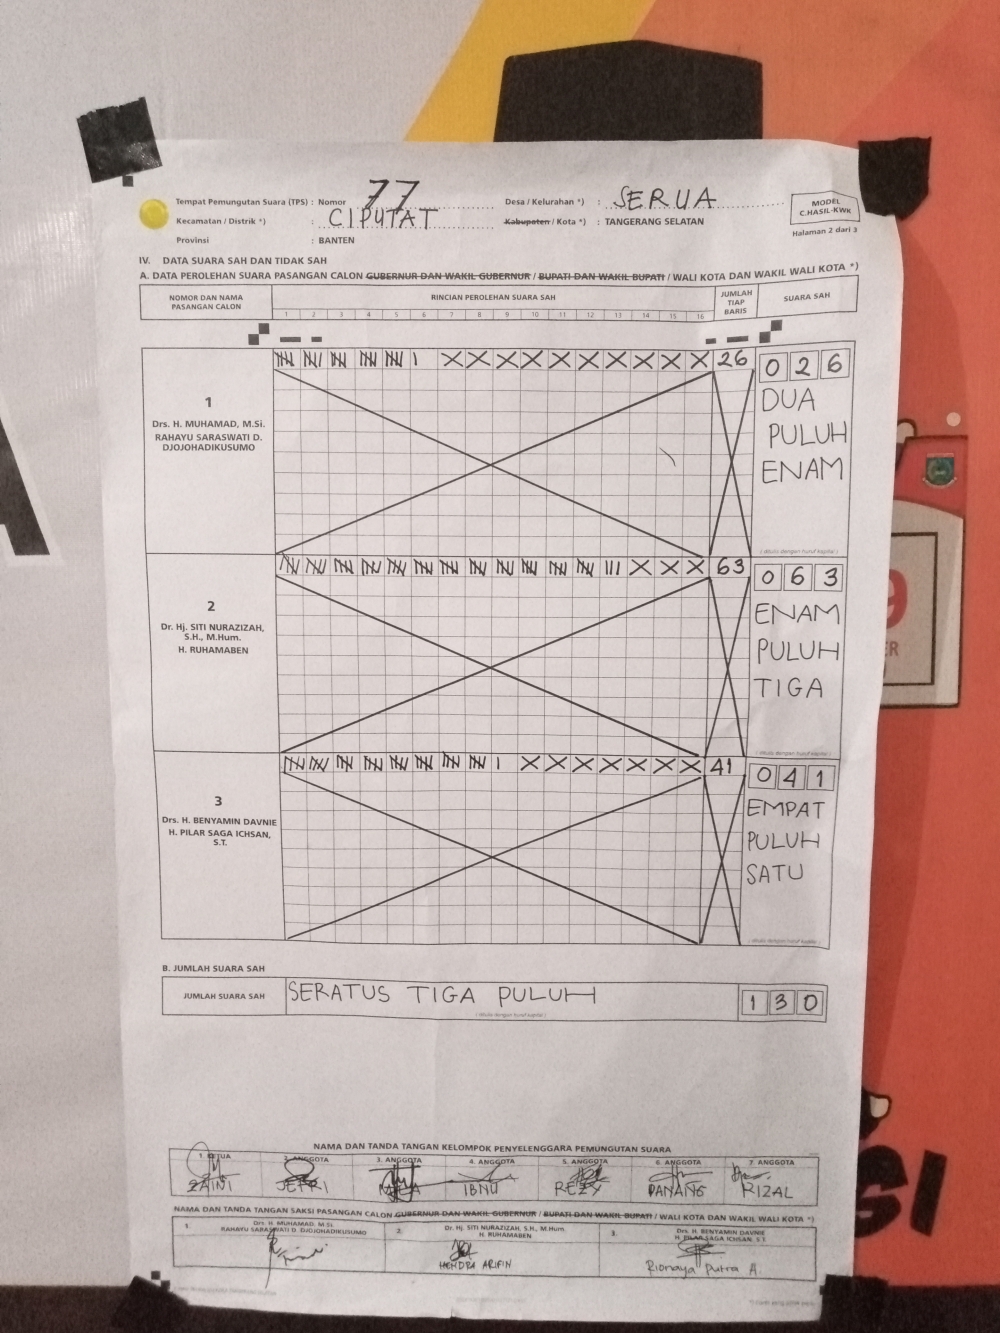 Tempat Pemungutan Suara (TPS) : Nomor 77 Desa / Kelurahan *) : SERUA
MODEL
C.HASIL-KWK
Kecamatan / Distrik *) : CIPUTAT Kabupaten / Kota *) : TANGERANG SELATAN
Halaman 2 dari 3
Provinsi : BANTEN
IV. DATA SUARA SAH DAN TIDAK SAH
A. DATA PEROLEHAN SUARA PASANGAN CALON GUBERNUR DAN WAKIL GUBERNUR / BUPATI DAN WAKIL BUPATI / WALI KOTA DAN WAKIL WALI KOTA *)
NOMOR DAN NAMA
PASANGAN CALON
RINCIAN PEROLEHAN SUARA SAH
1 2 3 4 5 6 7 8 9 10 11 12 13 14 15 16
JUMLAH
TIAP
BARIS
SUARA SAH
1
Drs. H. MUHAMAD, M.Si.
RAHAYU SARASWATI D.
DJOJOHADIKUSUMO
26
0 2 6
DUA
PULUH
ENAM
( ditulis dengan huruf kapital )
2
Dr. Hj. SITI NURAZIZAH,
S.H., M.Hum.
H. RUHAMABEN
63
0 6 3
ENAM
PULUH
TIGA
( ditulis dengan huruf kapital )
3
Drs. H. BENYAMIN DAVNIE
H. PILAR SAGA ICHSAN,
S.T.
41
0 4 1
EMPAT
PULUH
SATU
( ditulis dengan huruf kapital )
B. JUMLAH SUARA SAH
JUMLAH SUARA SAH SERATUS TIGA PULUH 1 3 0
( ditulis dengan huruf kapital )
NAMA DAN TANDA TANGAN KELOMPOK PENYELENGGARA PEMUNGUTAN SUARA
1. KETUA 2. ANGGOTA 3. ANGGOTA 4. ANGGOTA 5. ANGGOTA 6. ANGGOTA 7. ANGGOTA
ZAINI JEFRI IBNU REZY DANANG RIZAL
NAMA DAN TANDA TANGAN SAKSI PASANGAN CALON GUBERNUR DAN WAKIL GUBERNUR / BUPATI DAN WAKIL BUPATI / WALI KOTA DAN WAKIL WALI KOTA *)
1. Drs. H. MUHAMAD, M.Si.
RAHAYU SARASWATI D. DJOJOHADIKUSUMO
2. Dr. Hj. SITI NURAZIZAH, S.H., M.Hum.
H. RUHAMABEN
HENDRA ARIFIN
3. Drs. H. BENYAMIN DAVNIE
H. PILAR SAGA ICHSAN, S.T.
Rionaya Putra A.